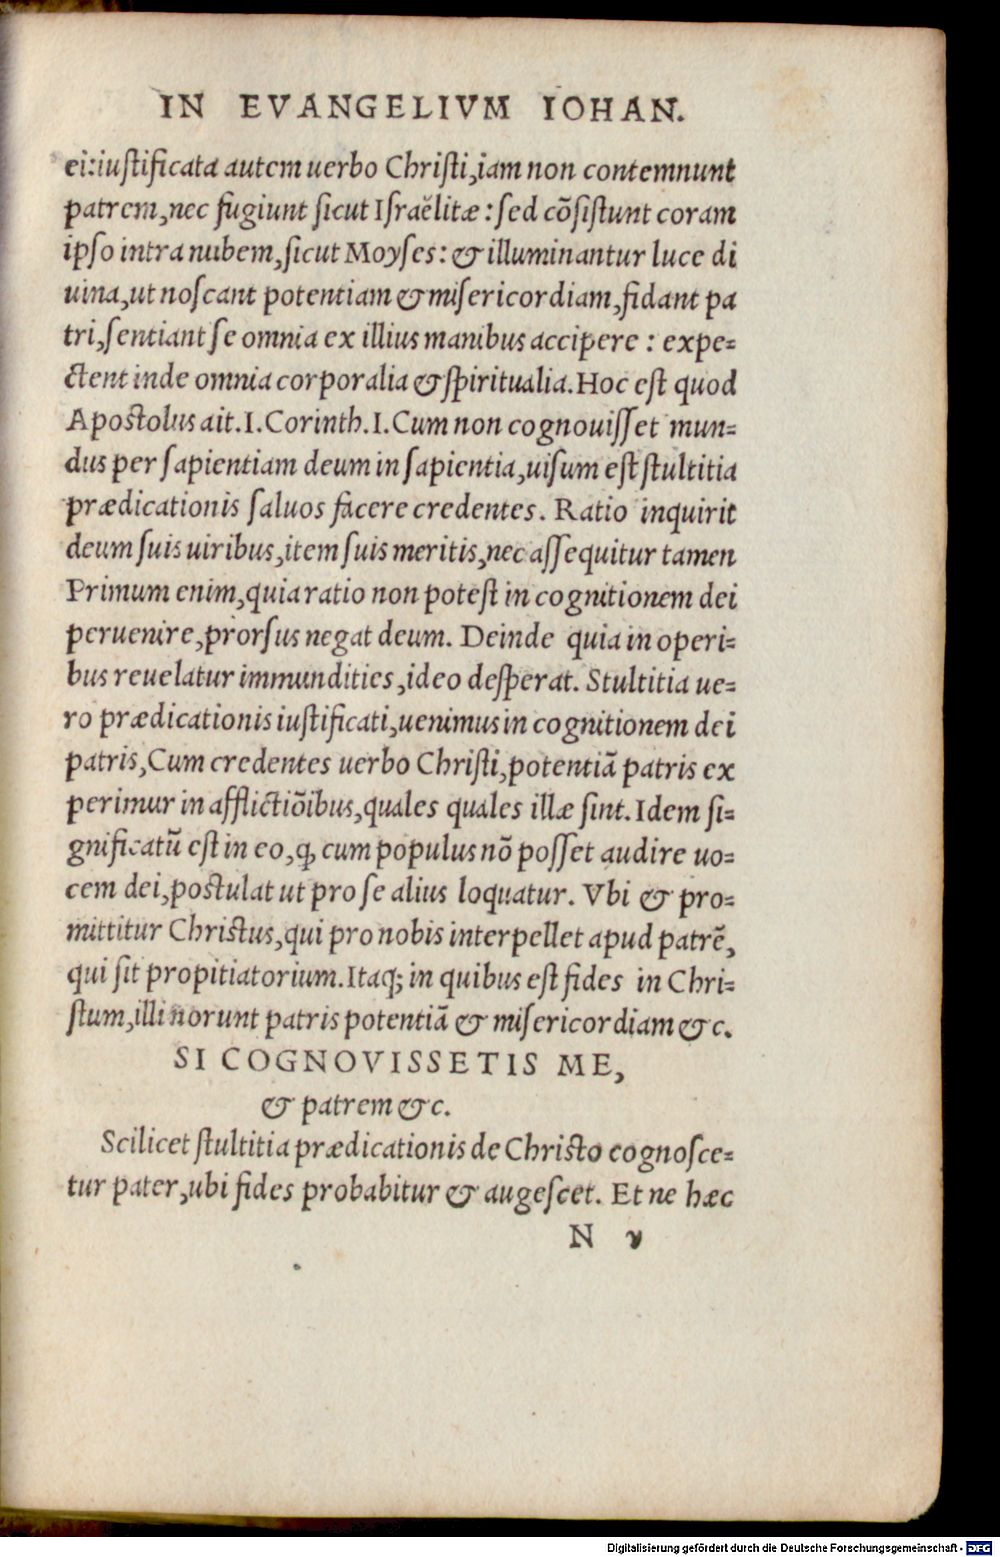 IN EVANGELIVM IOHAN.
ei:iustificata autem uerbo Christi,iam non contemnunt
patrem,nec fugiunt sicut Israëlitæ: sed cõsistunt coram
ipso intra nubem,sicut Moyses: & illuminantur luce di
uina,ut noscant potentiam & misericordiam,fidant pa
tri,sentiant se omnia ex illius manibus accipere : expe=
ctent inde omnia corporalia & spiritualia. Hoc est quod
Apostolus ait. I. Corinth. I. Cum non cognouisset mun=
dus per sapientiam deum in sapientia,uisum est stultitia
prædicationis saluos facere credentes. Ratio inquirit
deum suis uiribus,item suis meritis,nec assequitur tamen
Primum enim,quia ratio non potest in cognitionem dei
peruenire,prorsus negat deum. Deinde quia in operi=
bus reuelatur immundities,ideo desperat. Stultitia ue=
ro prædicationis iustificati,uenimus in cognitionem dei
patris,Cum credentes uerbo Christi,potentiã patris ex
perimur in afflictiõibus,quales quales illæ sint. Idem si=
gnificatũ est in eo,ꝙ cum populus nõ posset audire uo=
cem dei,postulat ut pro se alius loquatur. Vbi & pro=
mittitur Christus,qui pro nobis interpellet apud patrẽ,
qui sit propitiatorium. Itaq; in quibus est fides in Chri=
stum,illi norunt patris potentiã & misericordiam &c.
SI COGNOVISSETIS ME,
& patrem &c.
Scilicet stultitia prædicationis de Christo cognosce=
tur pater,ubi fides probabitur & augescet. Et ne hæc
N v
Digitalisierung gefördert durch die Deutsche Forschungsgemeinschaft - DFG